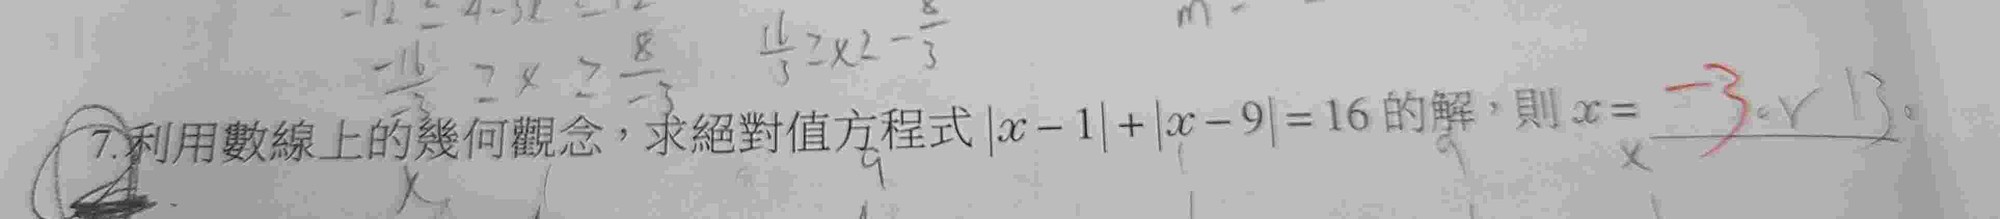 -12 ≤ 4-3x ≤ 12
m -
-16/-3 ≥ x ≥ 8/-3
16/3 ≥ x ≥ -8/3
7. 利用數線上的幾何觀念，求絕對值方程式 |x-1|+|x-9|=16 的解，則 x= -3 or 13。
x 1 9 1 9 x